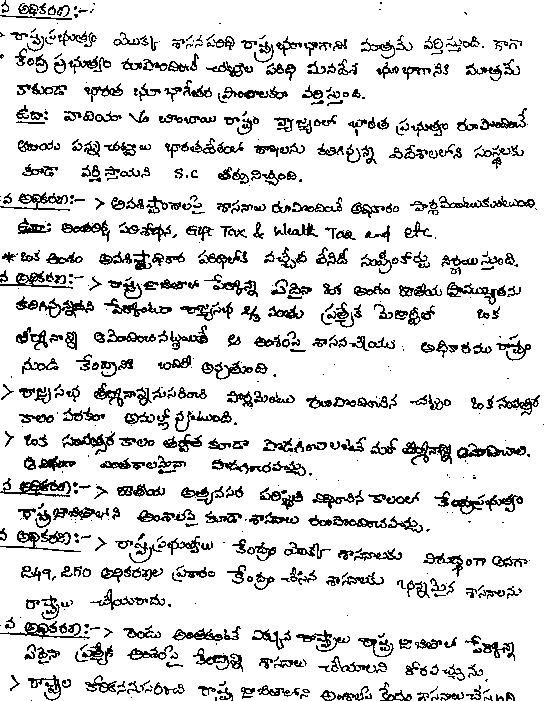 వ అధికరణ:-
> రాష్ట్రప్రభుత్వం యొక్క శాసనపరిధి రాష్ట్రభూభాగానికి మాత్రమే వర్తిస్తుంది. కాగా
కేంద్ర ప్రభుత్వం రూపొందించే చట్టాల పరిధి మనదేశ భూభాగానికి మాత్రమే
కాకుండా భారత భూభాగేతర ప్రాంతాలకూ వర్తిస్తుంది.
ఉదా: వాడియా Vs బొంబాయి రాష్ట్రం వ్యాజ్యంలో భారత ప్రభుత్వం రూపొందించే
ఆదాయ పన్ను చట్టాలు భారతదేశంలో శాఖలను కలిగివున్న విదేశాలలోని సంస్థలకు
కూడా వర్తిస్తాయని S.C తీర్పునిచ్చింది.
వ అధికరణ:- > అవశిష్టాంశాలపై శాసనాలు రూపొందించే అధికారం పార్లమెంటుకుంటుంది
ఉదా: అంతరిక్ష పరిశోధన, Gift Tax & Wealth Tax and etc.
* ఒక అంశం అవశిష్టాధికార పరిధిలోకి వచ్చేదీ లేనిదీ సుప్రీంకోర్టు నిర్ణయిస్తుంది.
వ అధికరణ:- > రాష్ట్రజాబితాలో పేర్కొన్న ఏదైనా ఒక అంశం జాతీయ ప్రాముఖ్యతను
కలిగివున్నదని పేర్కొంటూ రాజ్యసభ 2/3 వంతు ప్రత్యేక మెజార్టీతో ఒక
తీర్మానాన్ని ఆమోదించినట్లయితే ఆ అంశంపై శాసనంచేయు అధికారము రాష్ట్రం
నుండి కేంద్రానికి బదిలీ అవుతుంది.
> రాజ్యసభ తీర్మానాన్ననుసరించి పార్లమెంటు రూపొందించిన చట్టం ఒక సంవత్సర
కాలం వరకూ అమల్లో వుంటుంది.
> ఒక సంవత్సర కాలం తర్వాత కూడా పొడగించాలంటే మరో తీర్మానాన్ని ఆమోదించాలి.
ఆ విధంగా ఎంతకాలమైనా పొడిగించవచ్చు.
వ అధికరణ:- > జాతీయ అత్యవసర పరిస్థితి విధించిన కాలంలో కేంద్రప్రభుత్వం
రాష్ట్రజాబితాలోని అంశాలపై కూడా శాసనాలు రూపొందించవచ్చు.
వ అధికరణ:- > రాష్ట్రప్రభుత్వాలు కేంద్రం యొక్క శాసనాలకు విరుద్ధంగా అనగా
249, 250 అధికరణల ప్రకారం కేంద్రం చేసిన శాసనాలకు భిన్నమైన శాసనాలను
రాష్ట్రాలు చేయరాదు.
వ అధికరణ:- > రెండు అంతకంటే ఎక్కువ రాష్ట్రాలు రాష్ట్ర జాబితాలో పేర్కొన్న
ఏదైనా ప్రత్యేక అంశంపై కేంద్రాన్ని శాసనాలు చేయాలని కోరవచ్చును.
> రాష్ట్రాల కోరికననుసరించి రాష్ట్ర జాబితాలోని అంశాలపై కేంద్రం శాసనాలుచేస్తుంది